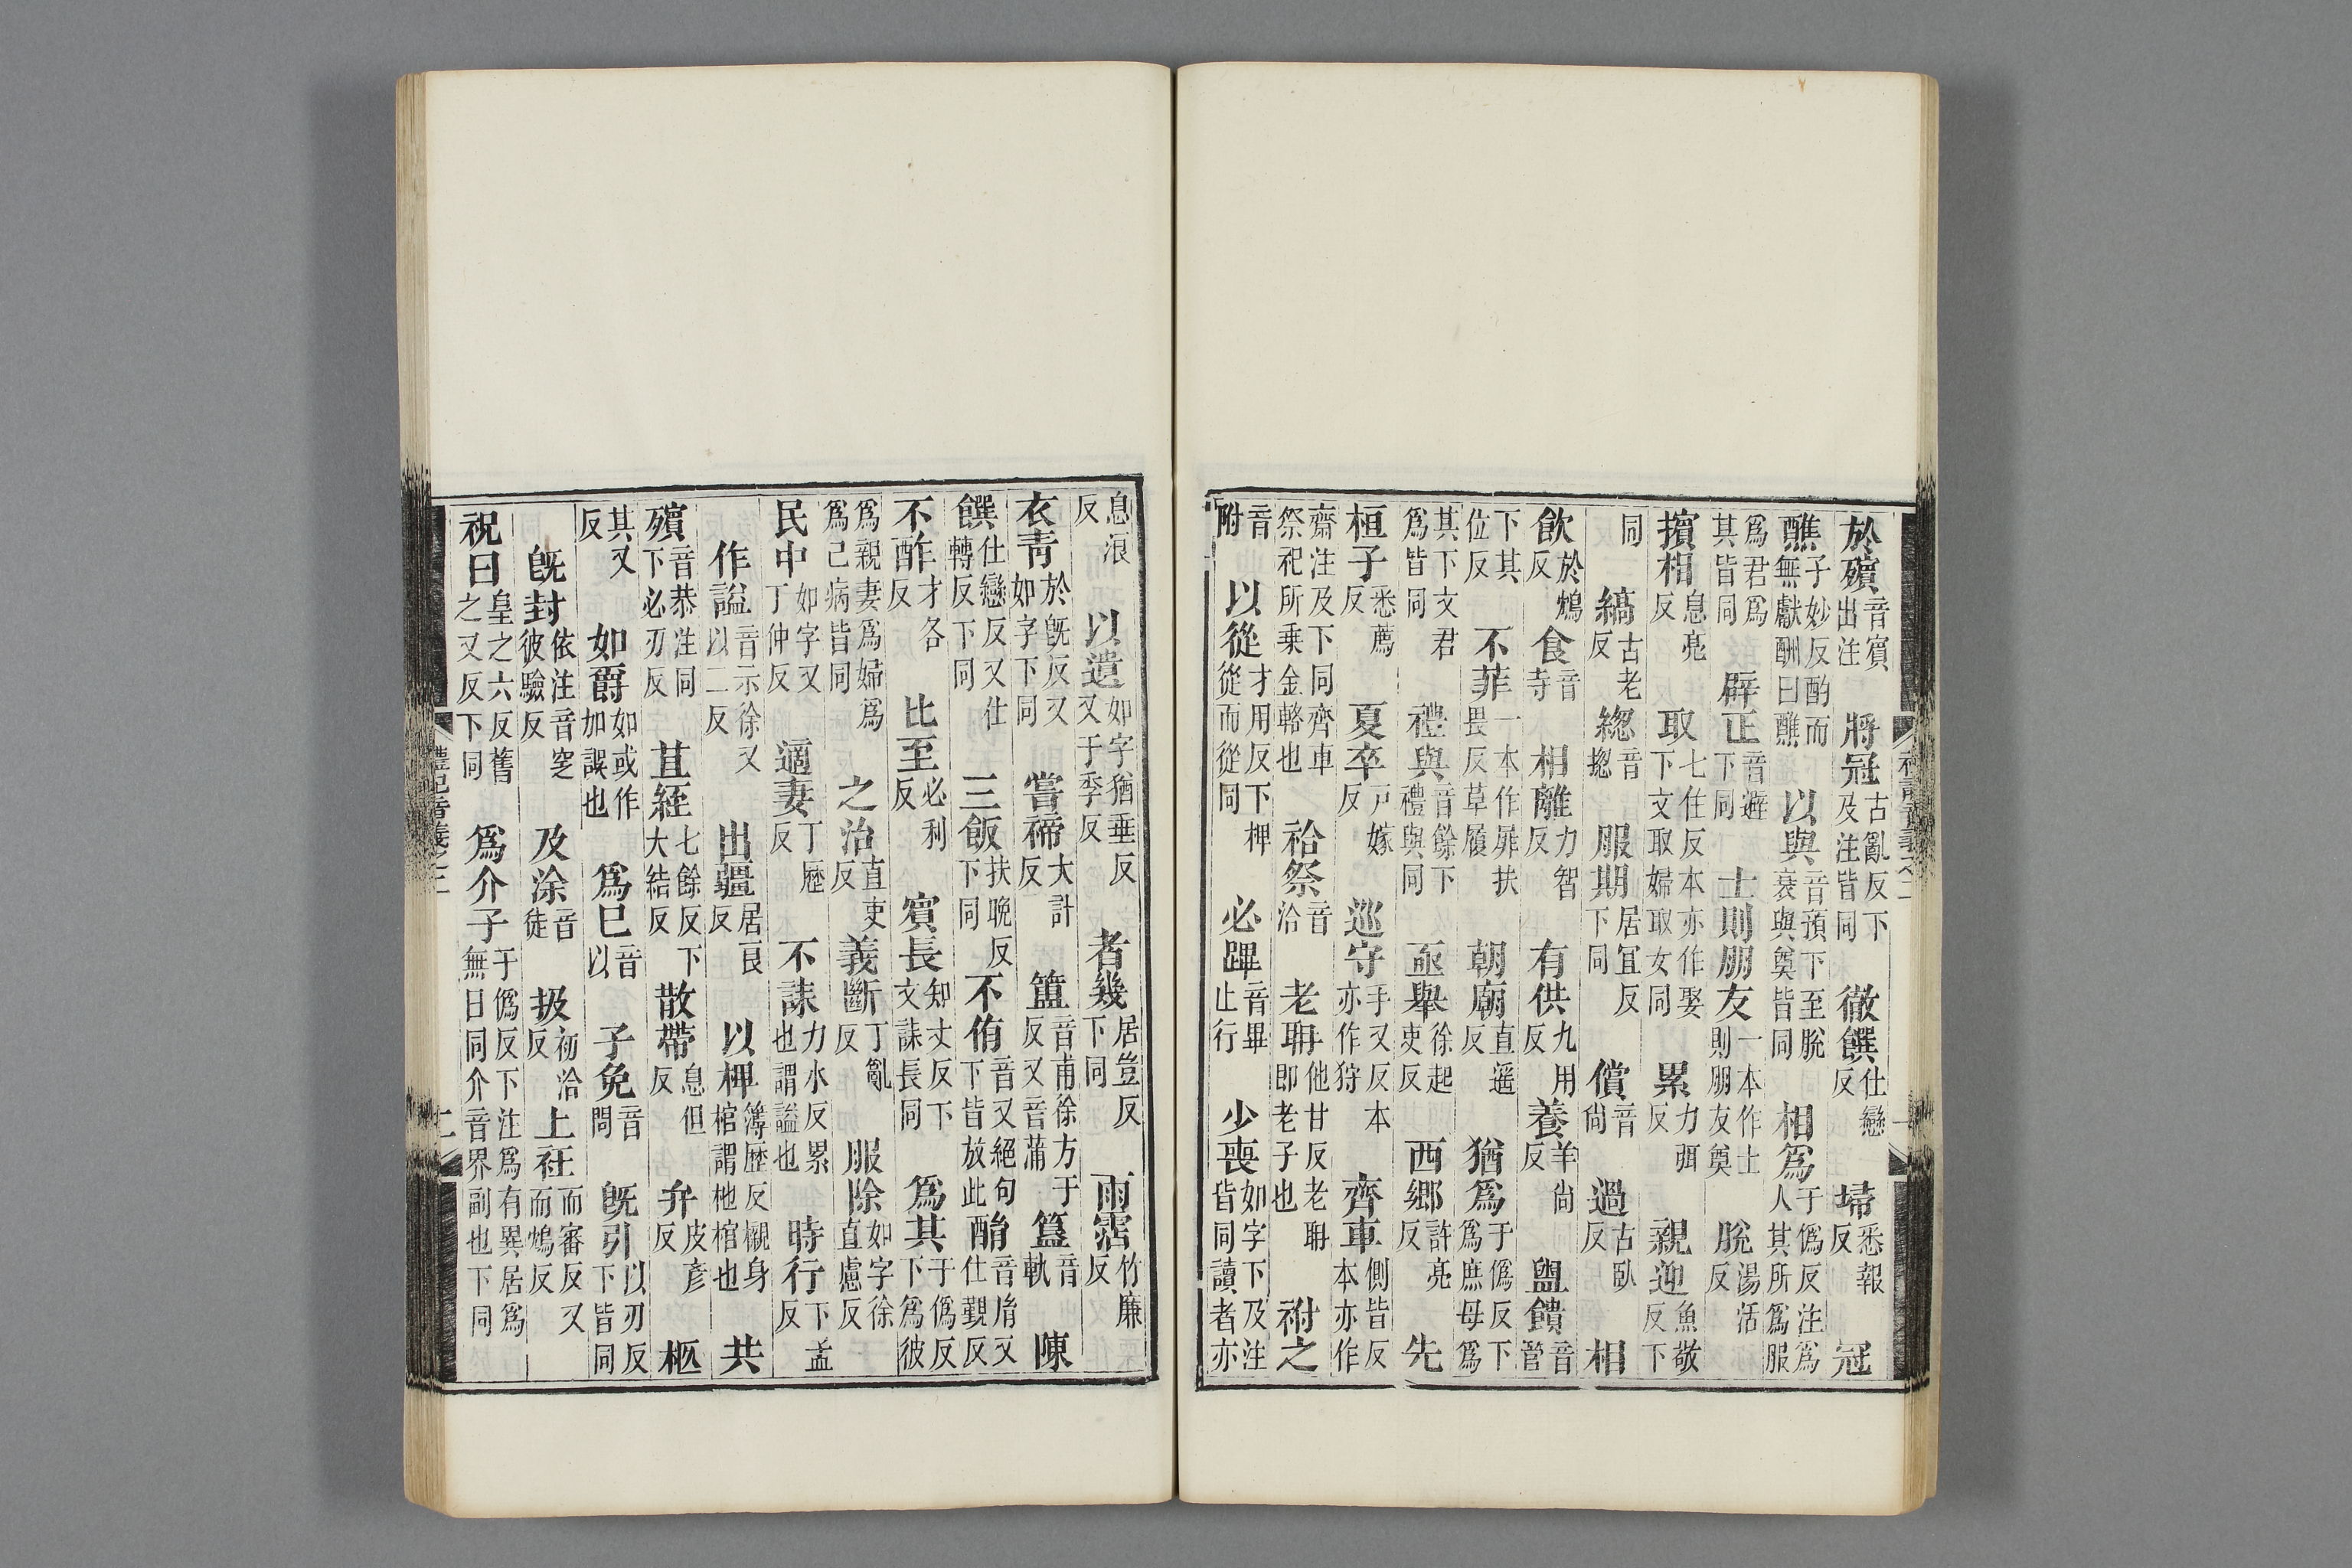 於殯音賓出注 將冠古亂反下及注皆同 徹饌仕戀反 埽悉報反 冠
醮子妙反酌而無獻酬曰醮 以與音預下至脫衰與奠皆同 相爲于僞反注爲人其所爲服
爲君爲其皆同 辟正音避下同 士則朋友一本作士則朋友奠 脫湯活反
擯相息亮反 取七住反本亦作娶下文取婦取女同 累力弭反 親迎魚敬反下
同 縞古老反 緫音揔 服期居宜反下同 償音尙 過古臥反 相
飲於鴆反 食音寺 相離力智反 有供九用反 養羊尙反 盥饋音管
下其位反 不菲一本作屝扶畏反草履 朝廟直遥反 猶爲于僞反下爲庶母爲
其下文君爲皆同 禮與音餘下禮與同 亟舉徐起吏反 西鄉許亮反 先
桓子悉薦反 夏卒戸嫁反 巡守手又反本亦作狩 齊車側皆反本亦作
齋注及下同齊車祭祀所乗金輅也 祫祭音洽 老聃他甘反老聃即老子也 祔之
音附 以從才用反下椑從而從同 必蹕音畢止行 少喪如字下及注皆同讀者亦
息浪反 以遺如字猶垂反又于季反 者幾居豈反下同 雨霑竹廉反
衣靑於旣反又如字下同 嘗禘大計反 簠音甫徐方于反又音蒲 簋音軌 陳
饌仕戀反又仕轉反下同 三飯扶晚反下同 不侑音又絕句下皆放此 酳音胤又仕覲反
不酢才各反 比至必利反 賓長知丈反下文誄長同 爲其于僞反下爲彼
爲親妻爲婦爲爲己病皆同 之治直吏反 義斷丁亂反 服除如字徐直慮反
民中如字又丁仲反 適妻丁歷反 不誄力水反累也謂謚也 時行下孟反
作謚音示徐又以二反 出疆居良反 以椑簿歴反櫬身棺謂杝棺也 共
殯音恭注同下必刃反 苴絰七餘反下大結反 散帶息但反 弁皮彥反 柩
其又反 如爵如或作加誤也 爲巳音以 子免音問 旣引以刃反下皆同
旣封依注音窆彼驗反 及涂音徒 扱初洽反 上衽而審反又而鴆反
祝曰皇之六反舊之又反下同 爲介子于僞反下注爲有異居爲無日同介音界副也下同
禮記音義之二